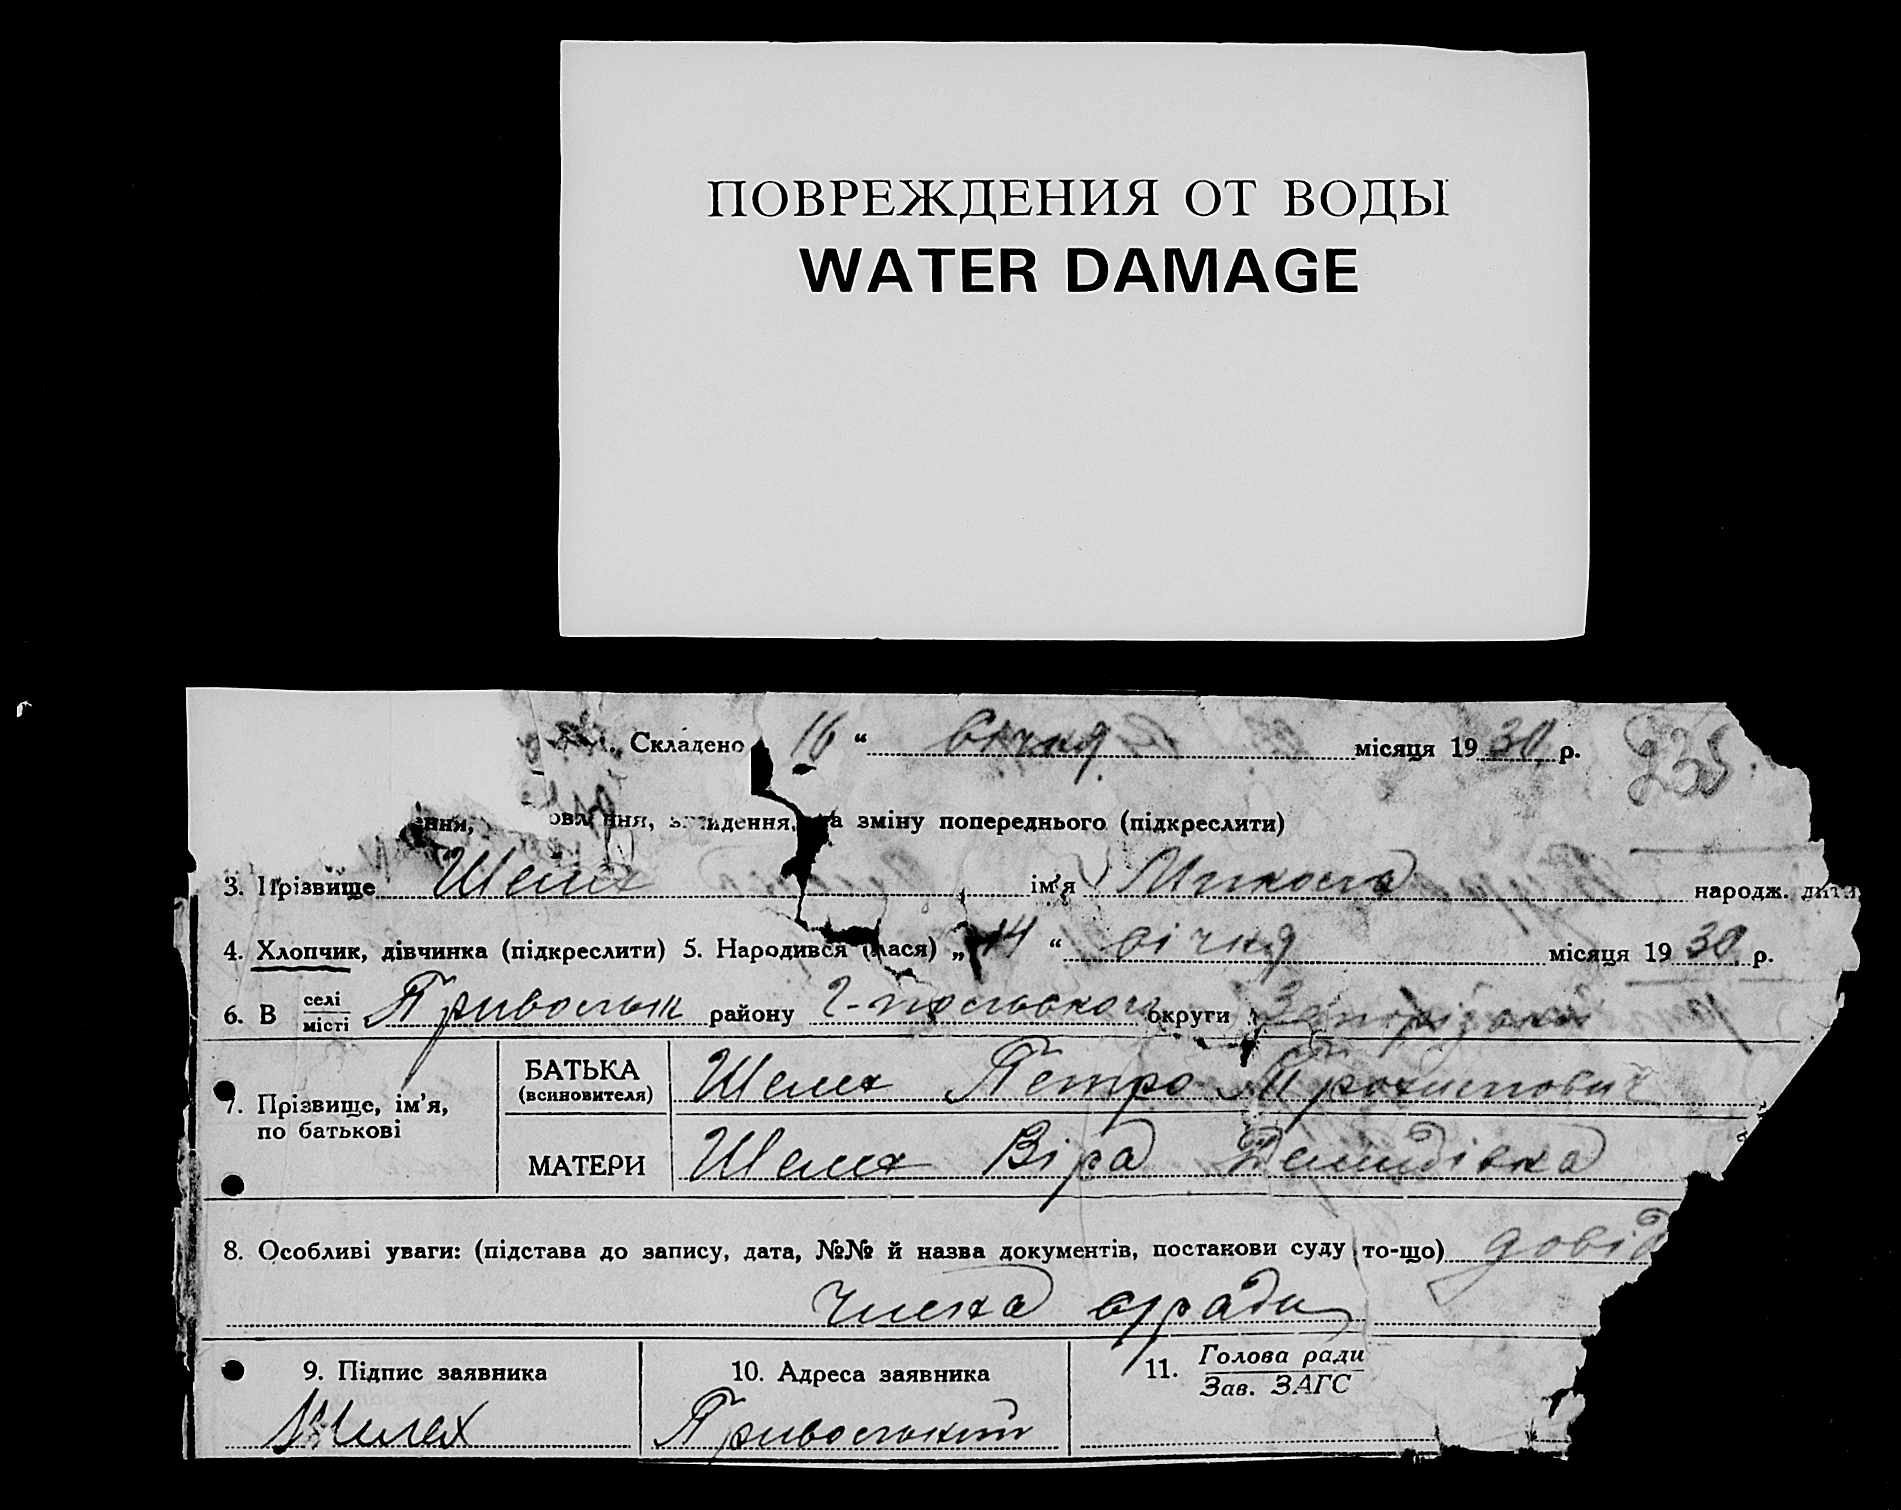 ПОВРЕЖДЕНИЯ ОТ ВОДЫ
WATER DAMAGE
Складено 16 “ січня місяця 1930 р. 235.
ння, ння, дення, та зміну попереднього (підкреслити)
3. Прізвище Шелех ім’я Микола народж. дит
4. Хлопчик, дівчинка (підкреслити) 5. Народився (лася) „14 “ січня місяця 1930 р.
6. В селі/місті району округи Запорізької
7. Прізвище, ім’я, по батькові
БАТЬКА (всиновителя) Шелех Петро
МАТЕРИ Шелех Віра Демидівна
8. Особливі уваги: (підстава до запису, дата, №№ й назва документів, постанови суду то-що) довід
9. Підпис заявника 10. Адреса заявника 11. Голова ради / Зав. ЗАГС
Шелех